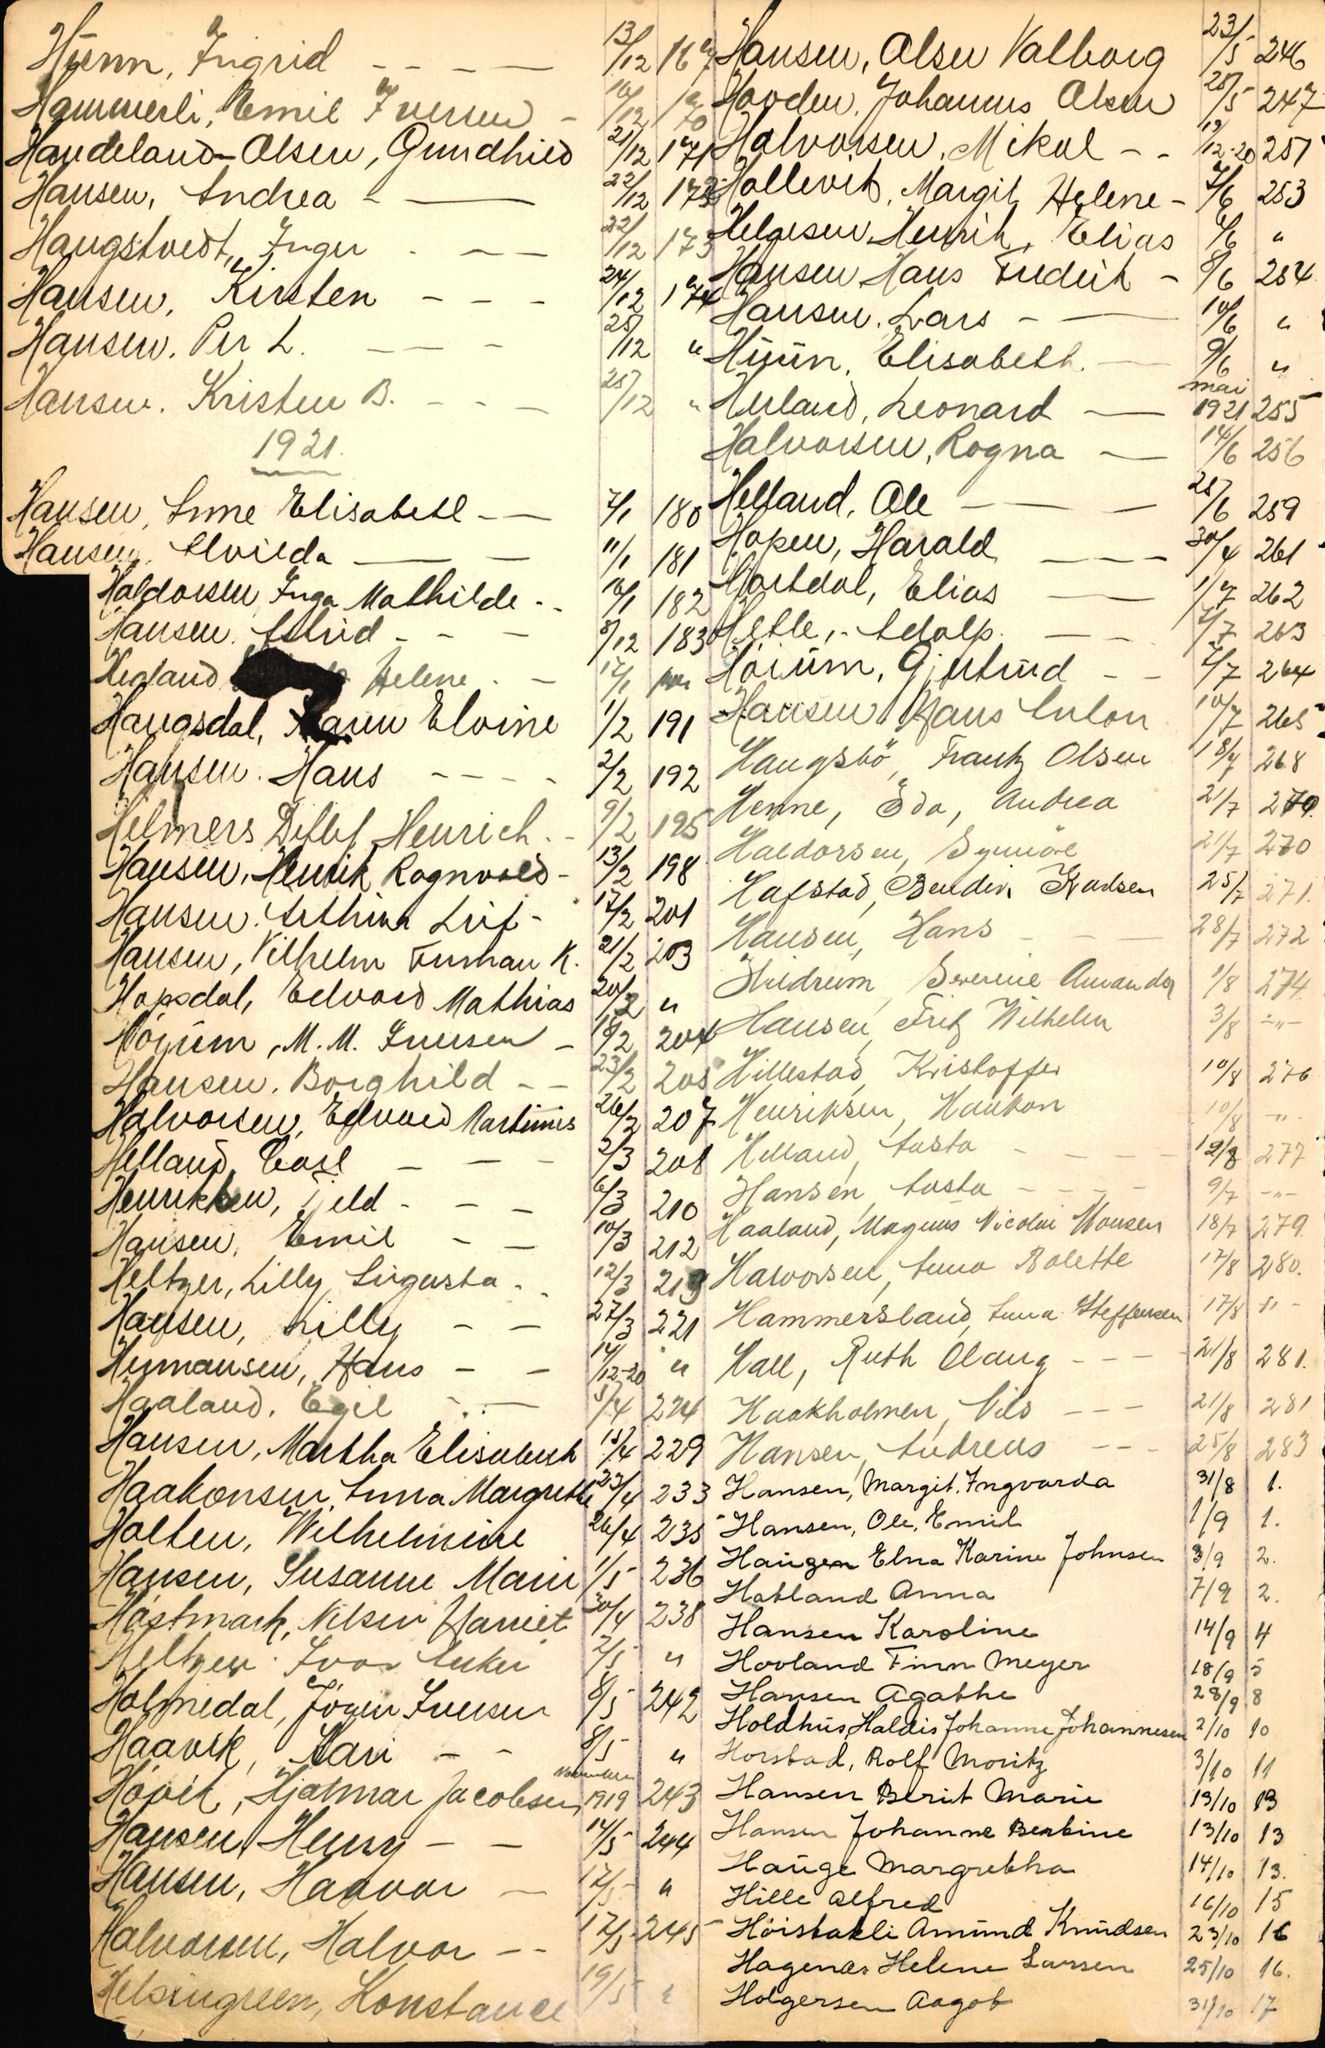 Hünn, Ingrid - - - - 13/12 169
Hammerli, Emil Iversen - 16/12 170
Handeland-Olsen, Gundhild 21/12 171
Hansen, Andrea - — 22/12 173
Haugstvedt, Inger - - — 22/12 173
Hansen, Kirsten - - - 24/12 174
Hansen, Per L. - - - - 25/12 "
Hansen, Kristen B. - - - 25/12 "
1921.
Hansen, Anne Elisabeth - — 7/1 180
Hansen, Alvilda — — 11/1 181
Haldorsen Inga Mathilde - - 16/1 182
Hansen, Astrid - - - 8/12 183
Hegland Helene - - 17/1
Haugsdal, Karen Elvine 1/2 191
Hansen, Hans - - - - 2/2 192
Helmers Detlef Henrich - - 9/2 195
Hansen, Henrik Ragnvald - 13/2 198
Hansen, Arthur Leif - 17/2 201
Hansen, Vilhelm Furman K. 21/2 203
Hopsdal, Edvard Mathias 20/2 "
Höjum, M. M. Iversen - 18/2 204
Hansen, Borghild - - 23/2 205
Halvorsen, Edvard Martinius 26/2 207
Helland, Carl - - - 2/3 208
Henriksen, Keld - - - 6/3 210
Hansen, Emil - - 10/3 212
Heltzer, Lilly Augusta - - 12/3 219
Hansen, Lilly - - 27/3 221
Hermansen, Hans - - 14/12-20 "
Haaland, Egil - - — 5/4 224
Hansen, Martha Elisabeth 15/4 229
Haakonsen, Anna Margrethe 23/4 233
Holten, Wilhelmine 26/4 235
Hansen, Susanne Marie 1/5 236
Høstmark, Nilsen Harriet 30/4 238
Heltzer Ivar Anker 2/5 "
Holmedal, Jörgen Iversen 8/5 242
Haavik, Kari - - 8/5 "
Hövik, Hjalmar Jacobsen November 1919 243
Hansen, Henry - - 14/5 244
Hansen, Haavar — 17/5 "
Halvorsen, Halvor - - 17/5 245
Helsingreen, Konstance 19/5 "
Hansen, Olsen Valborg 23/5 246
Hovden, Johannes Olsen 25/5 247
Halvorsen, Mikal - - 19/12-20 251
Hollevik, Margit Helene - 7/6 253
Helgesen Henrik Elias 4/6 "
Hansen Hans Fredrik - 8/6 254
Hansen, Lars - — 10/6 "
Hünn, Elisabeth — 9/6 "
Herland, Leonard — mai 1921 255
Halvorsen, Rogna — 14/6 256
Helland, Ole - — — 25/6 259
Hopen, Harald — - - 30/4 261
Hartdal, Elias — - 1/7 262
Hetle, Adolp. — - 2/7 263
Höium, Gjertrud - - 2/7 264
Hansen Hans Anton 10/7 265
Haugsbö, Frantz Olsen 18/7 268
Henne, Eda, Andrea 21/7 270.
Haldorsen, Synnöve 21/7 270
Hafstad, Bendix Knudsen 25/7 271.
Hansen, Hans - — 28/7 272
Hildrem, Severine Amanda 1/8 274.
Hansen, Fritz Wilhelm 3/8 -"-
Hillestad, Kristoffer 10/8 276
Henriksen, Haakon 10/8 -"-
Helland, Aasta - - - - 12/8 277
Hansen, Aasta - - - - 9/7 -"-
Haaland, Magnus Nicolai Monsen 18/7 279.
Halvorsen, Anna Bolette 17/8 280.
Hammersland, Anna Steffensen 17/8 " -
Hall, Ruth Olaug - - - 21/8 281.
Haakholmen, Nils - - - 21/8 281
Hansen, Andreas - - - 25/8 283
Hansen, Margit. Ingvarda 31/8 1.
Hansen, Ole, Emil 1/9 1.
Haugen Elna Karine Johnsen 3/9 2.
Hatland Anna 7/9 2.
Hansen Karoline 14/9 4
Hovland Finn Meyer 18/9 5
Hansen Agathe 28/9 8
Holdhus, Haldis Johanne Johannesen 2/10 10
Horstad, Rolf Moritz 3/10 11
Hansen Berit Marie 13/10 13
Hansen Johanne Berbine 13/10 13
Hauge Margretha 14/10 13.
Hille Alfred 16/10 15
Höistakli Amund Knudsen 23/10 16
Hagenæs Helene Larsen 25/10 16.
Holgersen Aagot 31/10 17